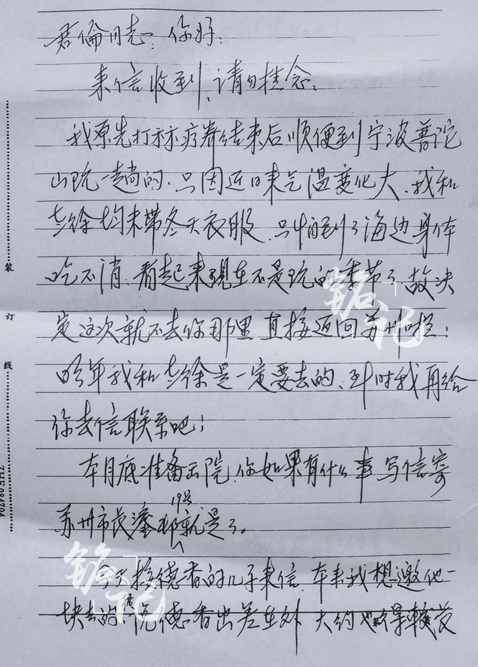 君倫同志：你好！
来信收到、请勿挂念。
我原先打祘疗养结束后顺便到宁波普陀
山玩一趟的、只因近日来气温变化大、我和
老徐均未带冬天衣服 只怕到了海边身体
吃不消 看起来现在不是玩的季节了 故决
定这次就不去你那里 直接返回苏州啦！
明年我和老徐是一定要去的、到时我再给
你去信联系吧！
本月底准备出院 你如果有什么事 写信寄
19号
苏州市长鎏邨就是了。
今天接德香的儿子来信 本来我想邀他一
块去的 德香出差在外 大约也
装
订
线
铭记
铭记